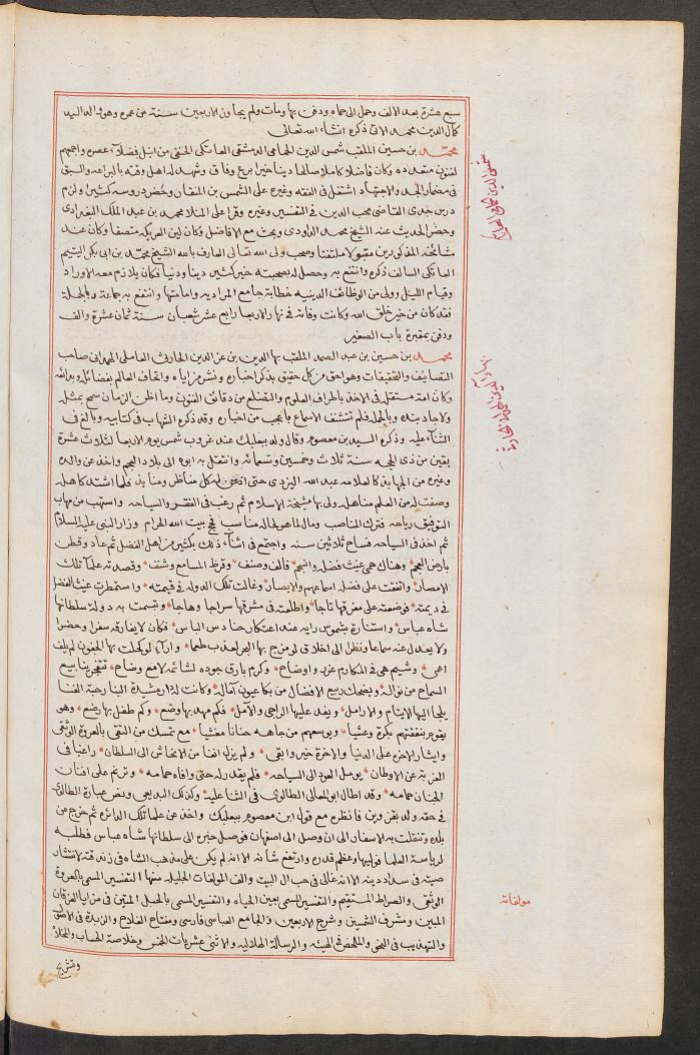 سبع عشرة بعد الالف وحمل الى حماه ودفن بها ومات ولم يجاوز الاربعين سنة من عمره وهو والد السيد
كمال الدين محمد الاتى ذكره انشاء الله تعالى
محمد بن حسين الملقب شمس الدين الحمامى الدمشقى العاتكى الحنفى من انبل فضلاء عصره واجمعهم
لفنون متعدده وكان فاضلا كاملا صالحا دينا خيرا برع وفاق وشهد له اهل وقته بالبراعه والسبق
فى مضمار الجد والاجتهاد اشتغل فى الفقه وغيره على الشمس بن المنقار وحضر دروسه كثيرا ولزم
درس جدى القاضى محب الدين فى التفسير وغيره وقرا على المنلا محمد بن عبد الملك البغدادى
وحضر الحديث عند الشيخ محمد الداودى وبحث مع الافاضل وكان لين العريكه متصفا وكان عند
مشائخه المذكورين مقبولا ملتفتا وصحب ولى الله تعالى العارف بالله الشيخ محمد بن ابى بكر اليتيم
العاتكى السالف ذكره وانتفع به وحصل له بصحبته خير كثير دينا ودنيا فكان يلازم معه الاوراد
وقيام الليل وولى من الوظائف الدينيه خطابة جامع المراديه وامامتها وانتفع به جماعة وبالجملة
فقد كان من خير خلق الله وكانت وفاته فى نهار الاربعا رابع عشر شعبان سنة ثمان عشرة والف
ودفن بمقبرة باب الصغير
محمد بن حسين بن عبد الصمد الملقب بهاء الدين بن عز الدين الحارثى العاملى الهمدانى صاحب
التصانيف والتحقيقات وهو احق من كل حقيق بذكر اخباره ونشر مزاياه واتحاف العالم بفضائله وبدائعه
وكان امة مستقلة فى الاخذ باطراف العلوم والتضلع من دقائق الفنون وما اظن الزمان سمح بمثله
ولا جاد بنده وبالجمله فلم تتشنف الاسماع باعجب من اخباره وقد ذكره الشهاب فى كتابيه وبالغ فى
الثناء عليه وذكره السيد بن معصوم وقال ولد ببعلبك عند غروب شمس يوم الاربعا لثلاث عشرة
بقين من ذى الحجه سنة ثلاث وخمسين وتسعمائه وانتقل به ابوه الى بلاد العجم واخذ عن والده
وغيره من الجهابذ كالعلامه عبد الله اليزدى حتى اذعن له كل مناظر ومنابذ فلما اشتد كاهله
وصفت له من العلم مناهله ولى بها مشيخة الاسلام ثم رغب فى الفقر والسياحه واستهب من مهاب
التوفيق رياحه فترك المناصب ومال لما هو لحاله مناسب فحج بيت الله الحرام وزار النبى عليه السلام
ثم اخذ فى السياحه فساح ثلاثين سنه واجتمع فى اثناء ذلك بكثير من اهل الفضل ثم عاد وقطن
بارض العجم وهناك همى غيث فضله وانسجم فالف وصنف وقرط المسامع وشنف وقصدته علماء تلك
الامصار واتفقت على فضله اسماعهم والابصار وغالت تلك الدوله فى قيمته واستمطرت غيث الفضل
فى ديمته فوضعته على مفرقها تاجا واطلعته فى مشرقها سراجا وهاجا وتبسمت به دولة سلطانها
شاه عباس واستنارت بشموس رايه عند اعتكار حنادس الباس فكان لا يفارقه سفرا وحضرا
ولا يعدل عنه سماعا ونظرا الى اخلاق لو مزج بها البحر لعذب طعما واراء لو كحلت بها الجفون لم يلف
اعمى وشيم هى فى المكارم غرر واوضاح وكرم بارق جوده لشائمه لامع وضاح تتفجر ينابيع
السماح من نواله ويضحك ربيع الافضال من بكا عيون آماله وكانت له دار مشيدة البنا رحبة الفنا
يلجا اليها الايتام والارامل ويغد عليها الراجى والآمل فكم مهد بها وضع وكم طفل بها رضع وهو
يقوم بنفقتهم بكرة وعشيا ويوسعهم من جاهه جنابا مغشيا مع تمسك من التقى بالعروة الوثقى
وايثار الاخره على الدنيا والاخرة خير وابقى ولم يزل انفا من الانحياش الى السلطان راغبا فى
الغربة عن الاوطان يومل العود الى السياحه فلم يقدر له حتى وافاه حمامه وترنم على افنان
الجنان حمامه وقد اطال ابو المعالى الطالوى فى الثنا عليه وكذلك البديعى ونص عبارة الطالوى
فى حقه ولد بقزوين فانظره مع قول ابن معصوم ببعلبك واخذ عن علما تلك الدائره ثم خرج من
بلده وتنقلت به الاسفار الى ان وصل الى اصفهان فوصل خبره الى سلطانها شاه عباس فطلبه
لرياسة العلما فوليها وعظم قدره وارتفع شانه الا انه لم يكن على مذهب الشاه فى زندقته لانتشار
صيته فى سداد دينه الا انه غالى فى حب ال البيت والف المولفات الجليله منها التفسير المسمى بالعروة
الوثقى والصراط المستقيم والتفسير المسمى بعين الحياه والتفسير المسمى بالحبل المتين فى مزايا الفرقان
المبين ومشرق الشمسين وشرح الاربعين والجامع العباسى فارسى ومفتاح الفلاح والزبدة فى الاصول
والتهذيب فى النحو والملخص فى الهيئه والرسالة الهلاليه والاثنى عشريات الخمس وخلاصة الحساب والمخلاة
وتشريح
مولفاته